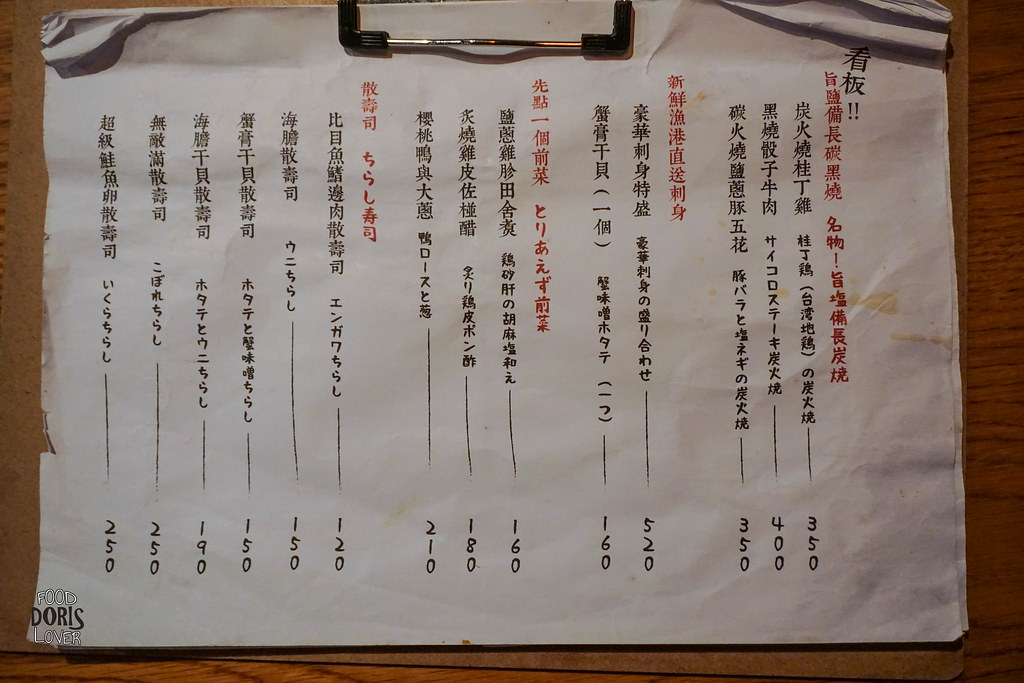 看板!!
旨鹽備長碳黑燒 名物!旨塩備長炭焼
炭火燒桂丁雞 桂丁鶏(台湾地鶏)の炭火焼 350
黑燒骰子牛肉 サイコロステーキ炭火焼 400
碳火燒鹽蔥豚五花 豚バラと塩ネギの炭火焼 350
新鮮漁港直送刺身
豪華刺身特盛 豪華刺身の盛り合わせ 520
蟹膏干貝(一個) 蟹味噌ホタテ (一つ) 160
先點一個前菜 とりあえず前菜
鹽蔥雞胗田舍煮 鶏砂肝の胡麻塩和え 160
炙燒雞皮佐椪醋 炙り鶏皮ポン酢 180
櫻桃鴨與大蔥 鴨ロースと葱 210
散壽司 ちらし寿司
比目魚鰭邊肉散壽司 エンガワちらし 120
海膽散壽司 ウニちらし 150
蟹膏干貝散壽司 ホタテと蟹味噌ちらし 150
海膽干貝散壽司 ホタテとウニちらし 190
無敵滿散壽司 こぼれちらし 250
超級鮭魚卵散壽司 いくらちらし 250
FOOD
DORIS
LOVER